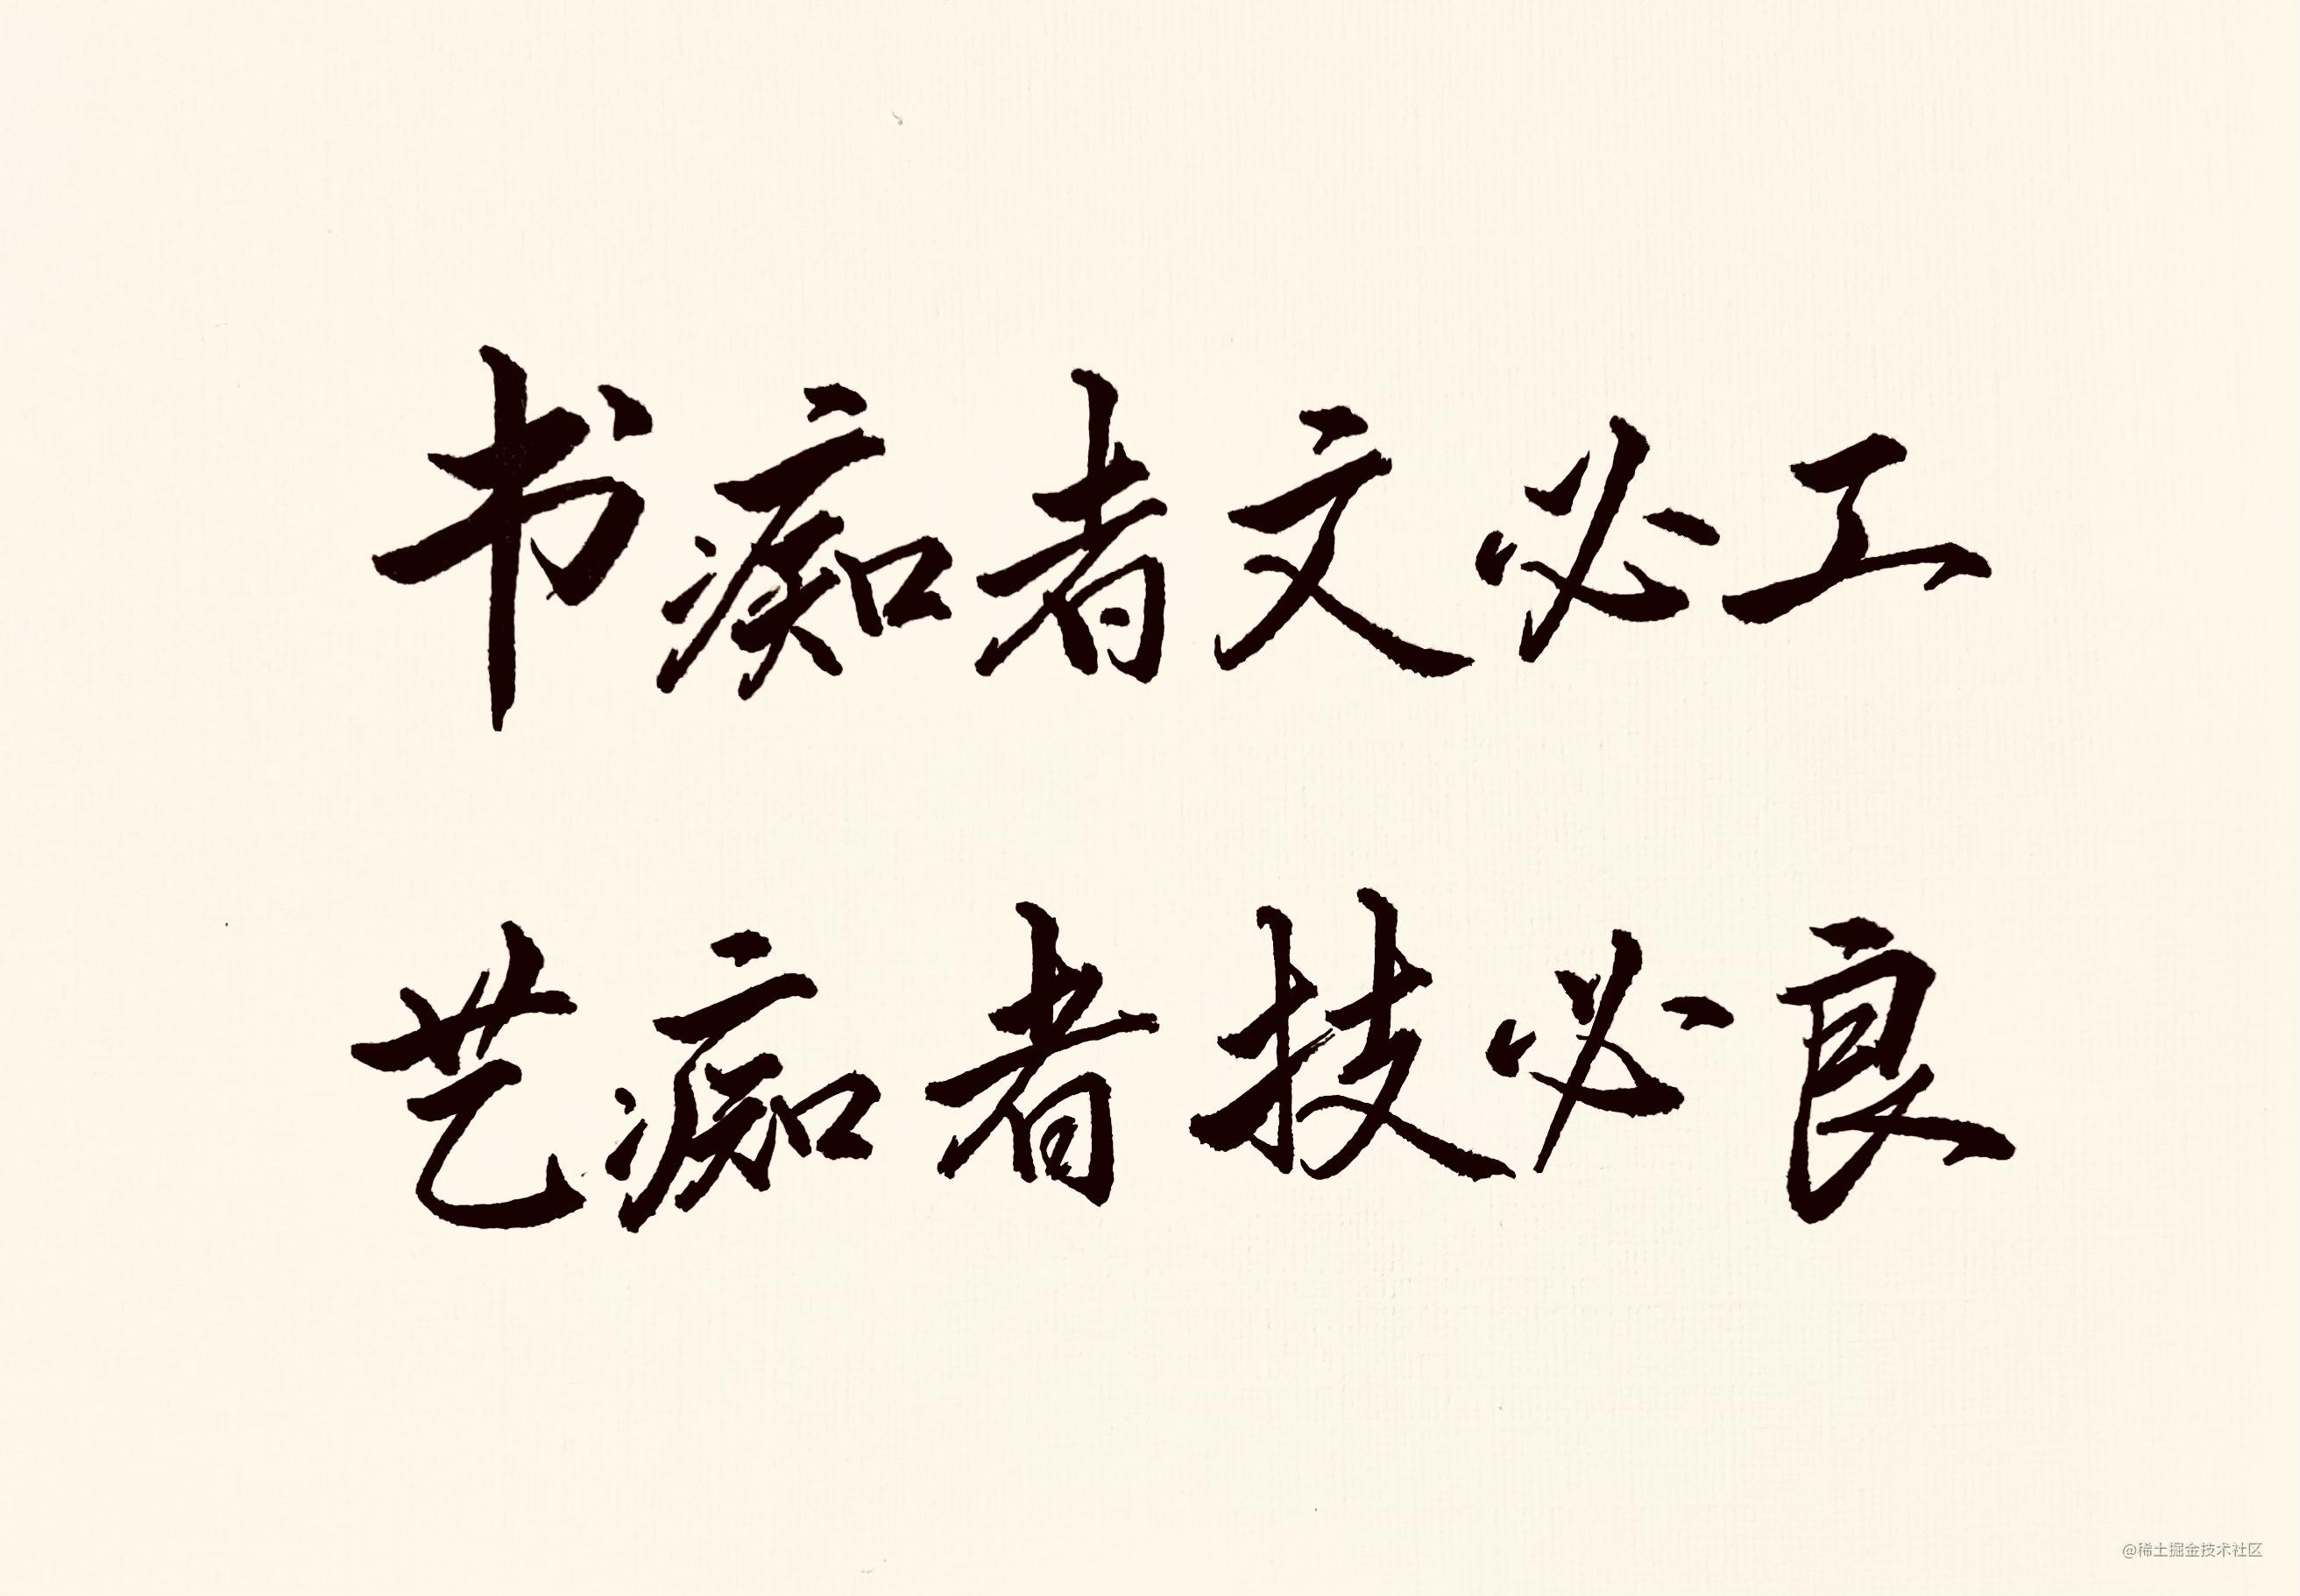 书痴者文必工
艺痴者技必良
@稀土掘金技术社区